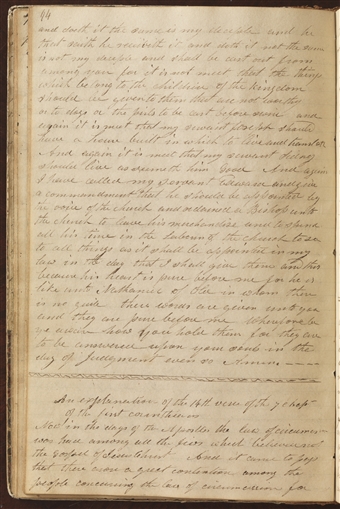 94
and doeth it the same is my deciple and he
that saith he receiveth it and doth it not the same
is not my deciple and shall be cast out from
among you for it is not meet that the things
which belong to the children of the kingdom
should be given to them that are not worthy
or to dogs or the perls to be cast before swine and
again it is meet that my servant Joseph should
have a home built in which to live and translate
And again it is meet that my servant Sidney
should live as seemeth him good And again
I have called my servant Edward and give
a commandment that he should be appointed by
the voice of the church and ordained a Bishop unto
the church to leave his merchandise and to spend
all his time in the labours of the church to see
to all things as it shall be appointed in my
law in the day that I shall give them and this
because his heart is pure before me for he is
like unto Nathaniel of Old in whom there
is no guile these words are given unto you
and they are pure before me Wherefore be
ye aware how you hold them for they are
to be answered upon your souls in the
day of Judgment even so Amen
An explanation of the 14th verse of the 7 chapt
of the first corintheans
Now in the days of the Apostles the law of circumsi-
was had among all the Jews which believed not
the gospel of Jesus Christ And it came to pass
that there arose a great contention among the
people concerning the law of circumcision for